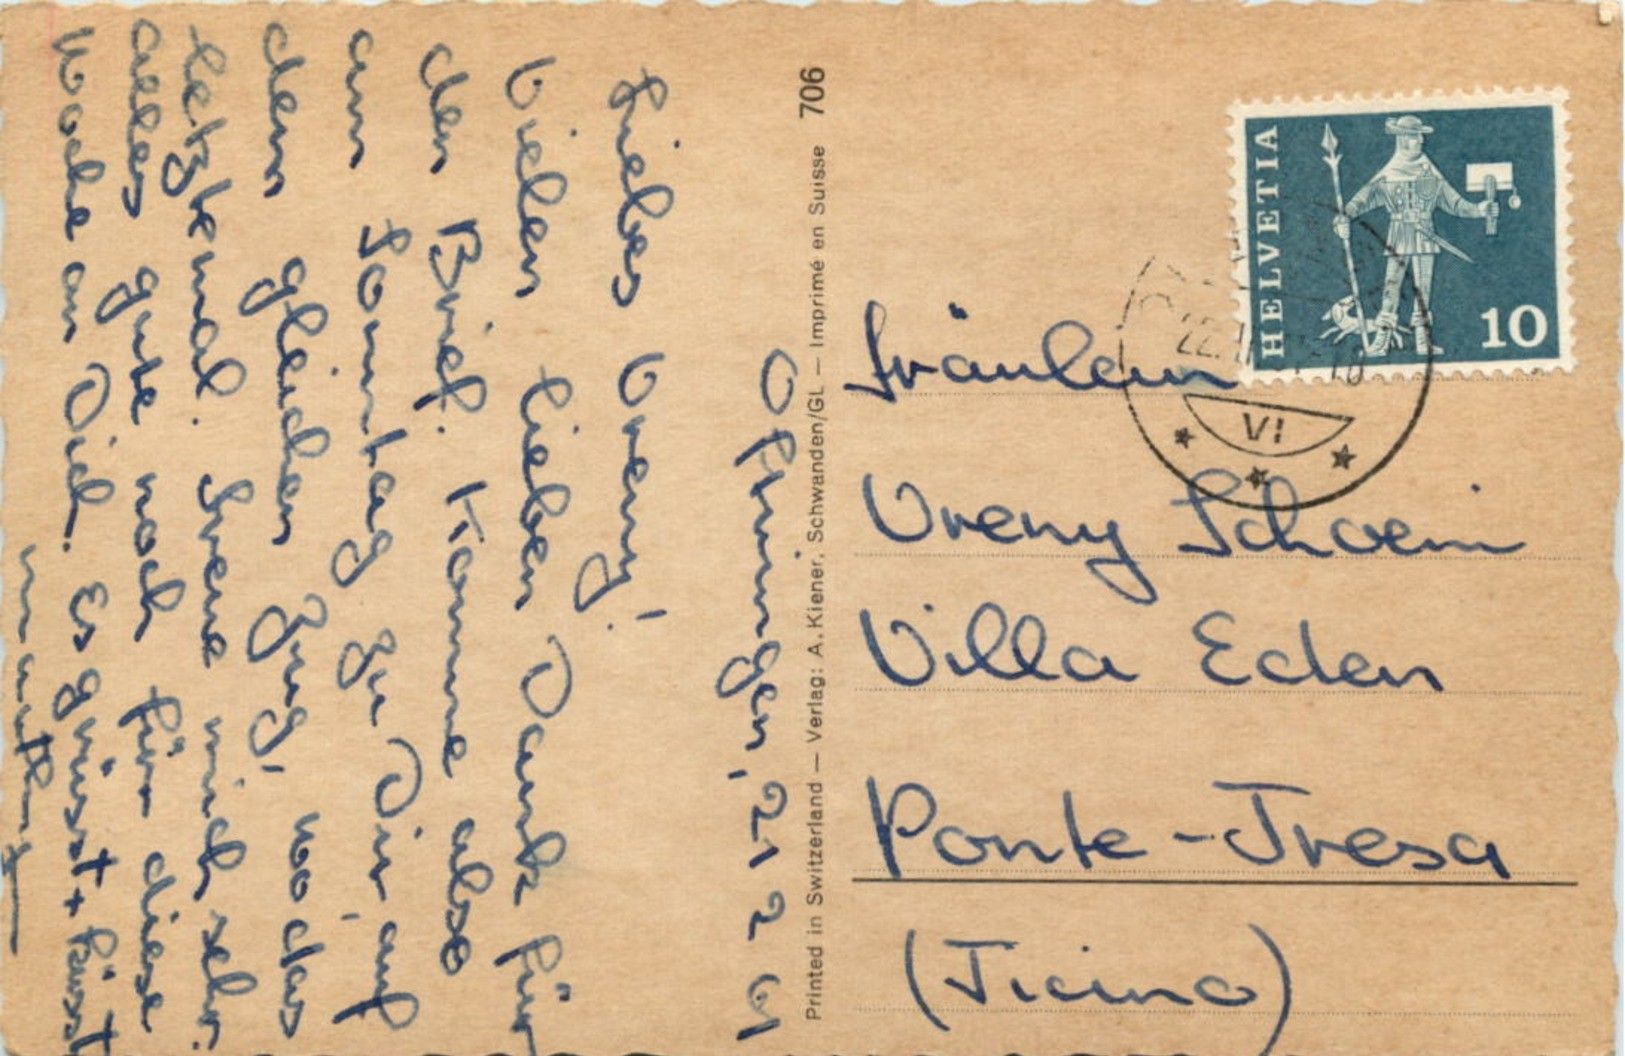 Oftringen, 21 2 61
Liebes Vreny!
Vielen lieben Dank für
den Brief. Komme also
am Sonntag zu Dir, auf
dem gleichen Zug, wo das
letztemal. Freue mich sehr.
alles gute noch für diese
Woche an Dich. Es grüsst + küsst
Printed in Switzerland — Verlag: A. Kiener, Schwanden/GL — Imprimé en Suisse 706
HELVETIA
10
22.
VI
Fräulein
Vreny Schoeni
Villa Eden
Ponte-Tresa
(Ticino)